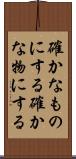 確かなもの
にする確か
な物にする